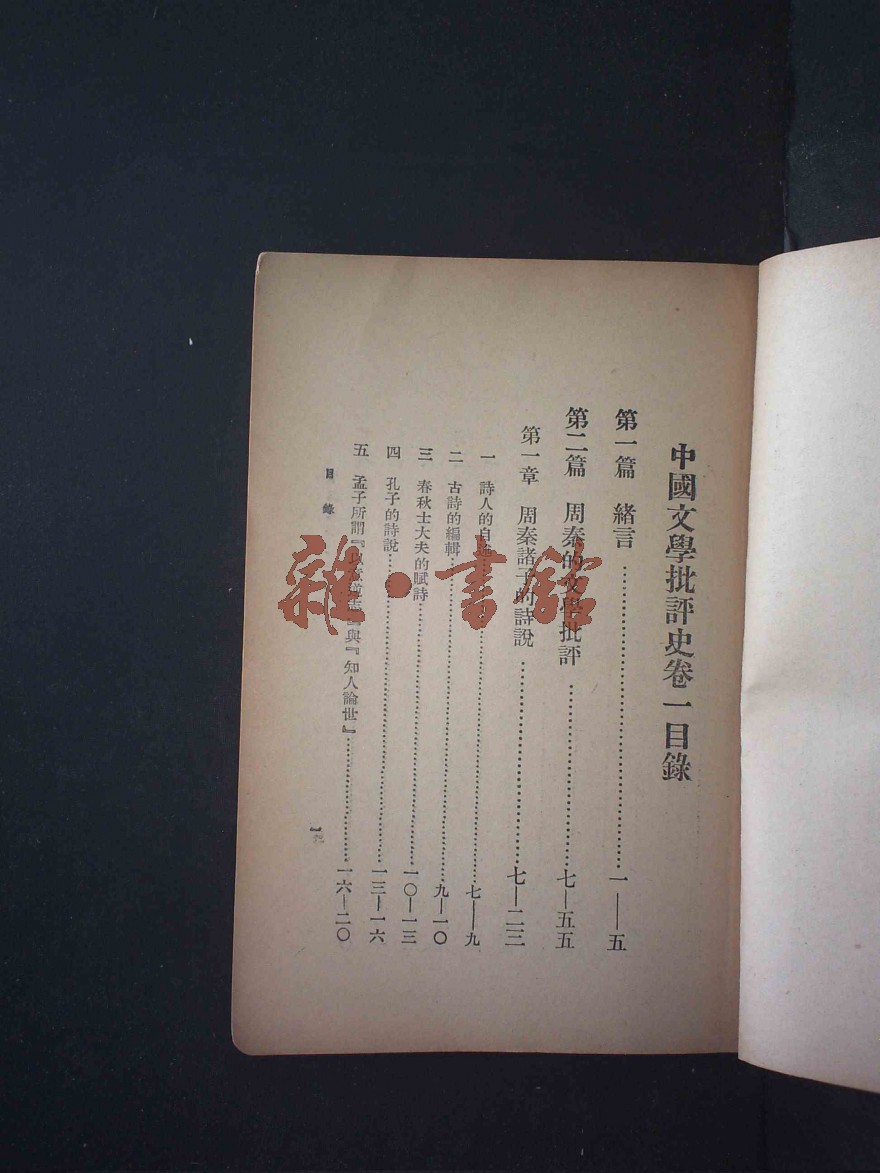 中國文學批評史卷一目錄
第一篇 緒言……一—五
第二篇 周秦的文學批評……七—五五
第一章 周秦諸子的詩說……七—二三
一 詩人的自……七—九
二 古詩的編輯……九—一〇
三 春秋士大夫的賦詩……一〇—一三
四 孔子的詩說……一三—一六
五 孟子所謂『以意逆志』與『知人論世』……一六—二〇
目錄
一
雜·書館